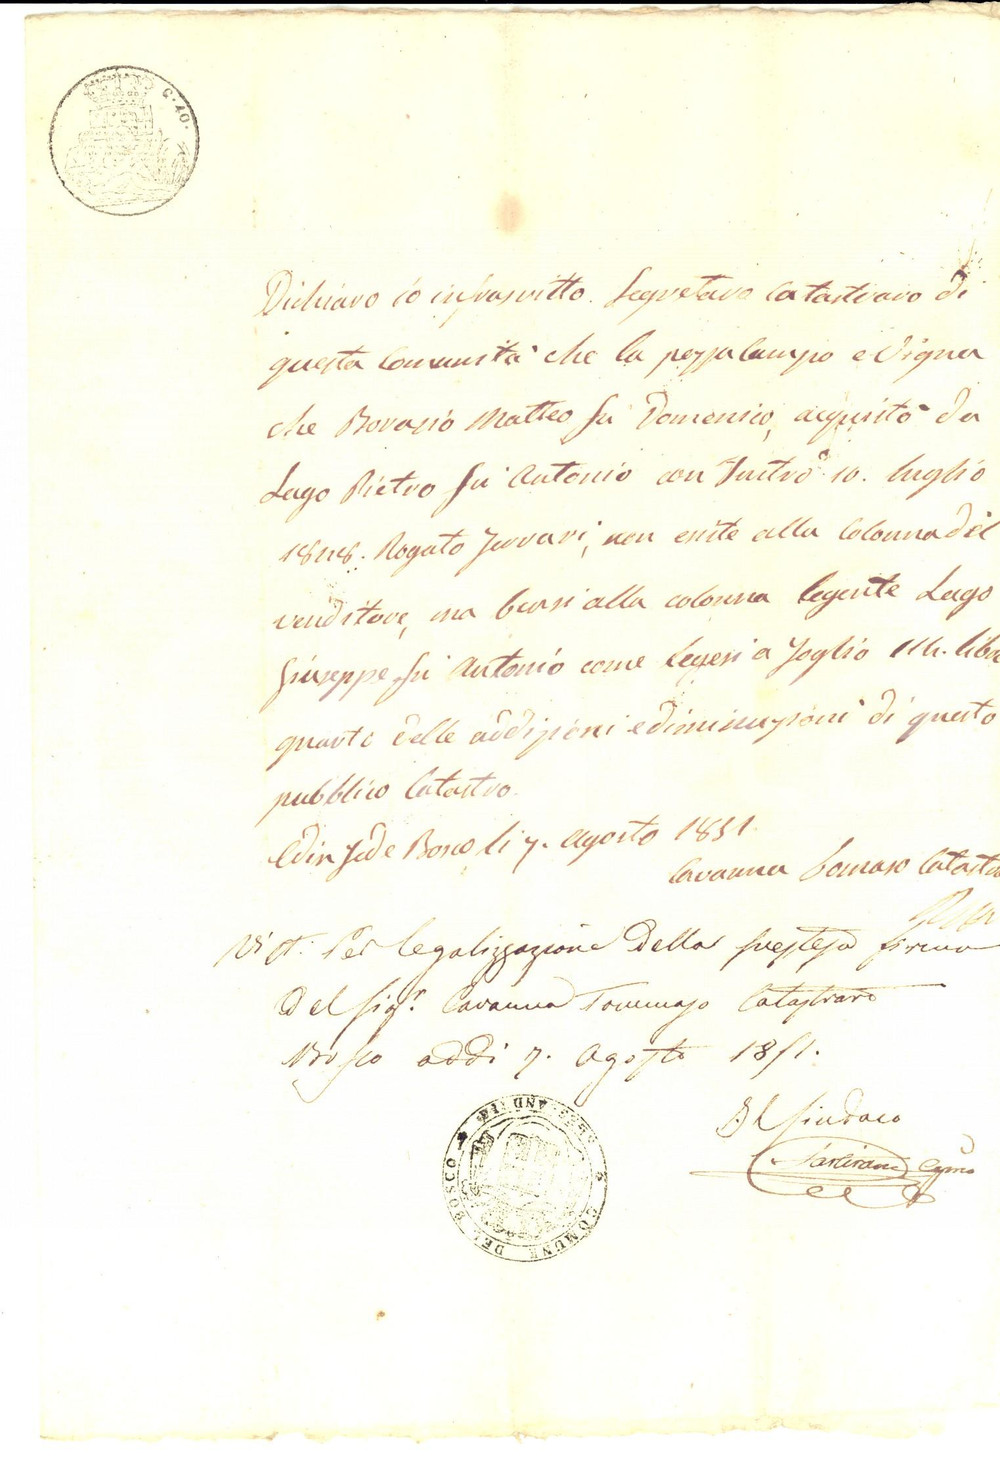 C. 40.
Dichiaro io infrascritto Segretaro Catastraro di
questa Comunità che la pezza Campo e Vigna
che Borasio Matteo fu Domenico, acquistò da
Lago Pietro fu Antonio con Instro 10. luglio
1848. Rogato Ferrari, non esiste alla Colonna del
venditore, ma bensi alla colonna Legente Lago
Giuseppe fu Antonio come Legesi a foglio 114. libro
quarto delle addizioni e diminuzioni di questo
pubblico Catastro.
Bosco li 7. Agosto 1851.
Cavanna Tomaso Catastro
Vist. Per legalizzazione della suestesa firma
del Sigr. Cavanna Tommaso Catastraro
Bosco addi 7. Agosto 1851.
Il Sindaco
COMUNE DEL BOSCO